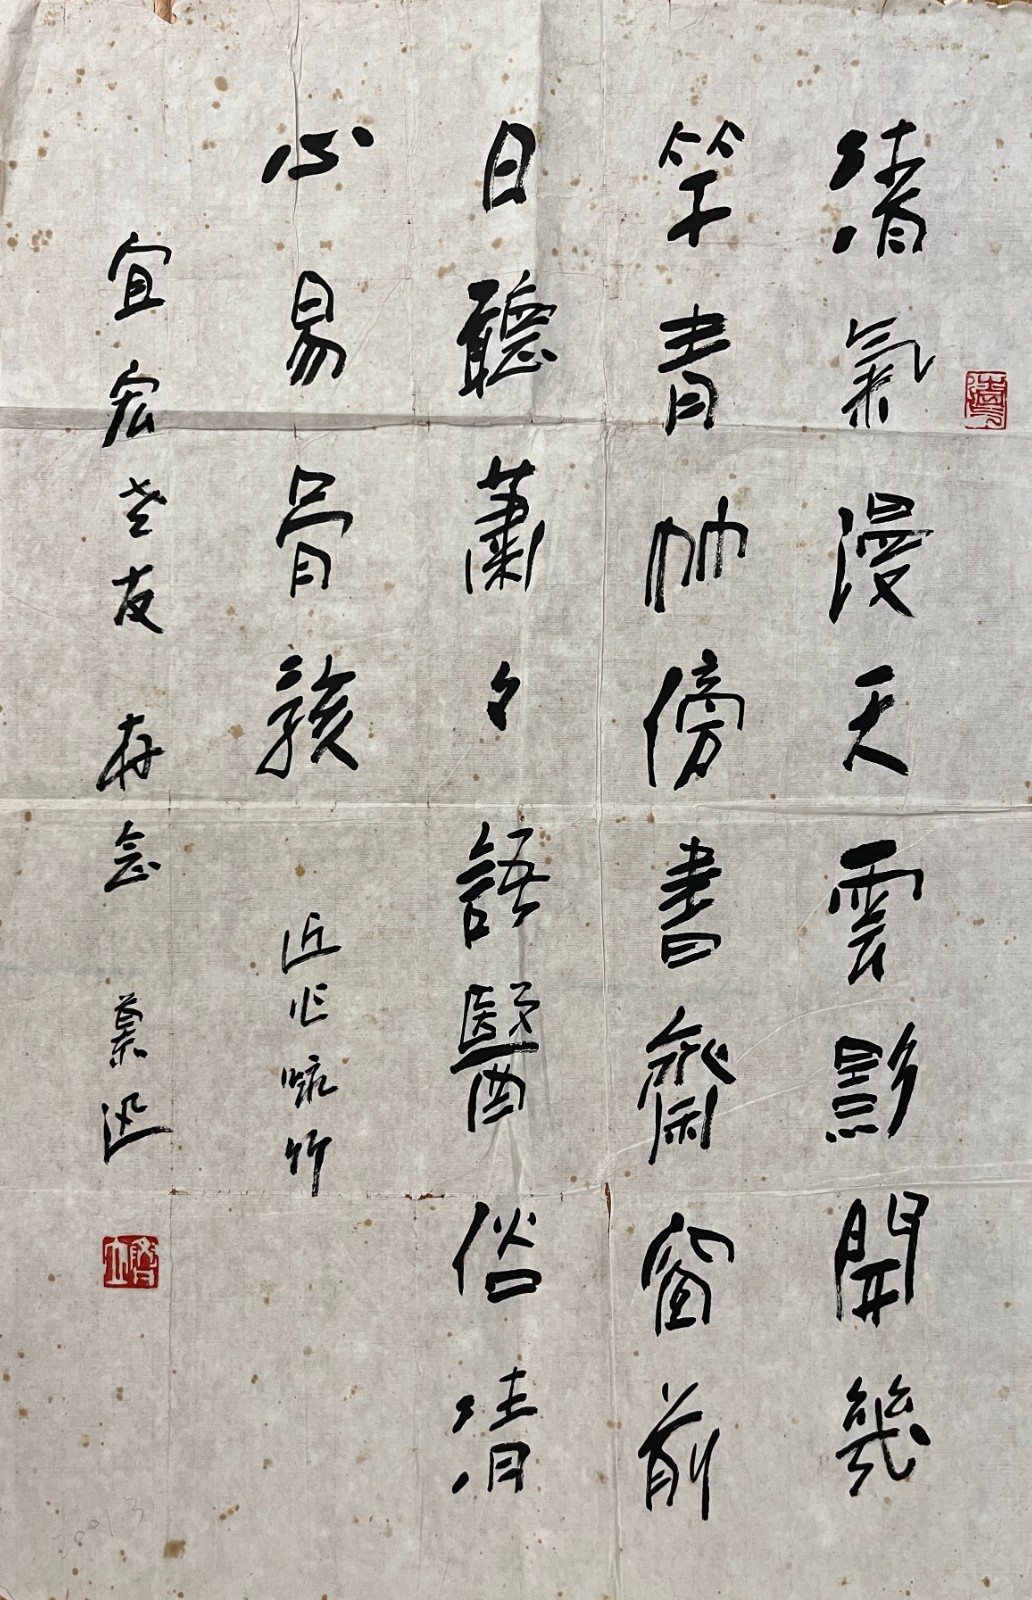 清氣漫天雲影開幾
竿青帥傍書齋窗前
日聽蕭々語醫俗清
心易骨骸
近作咏竹
宜宏老友存念
慕迅